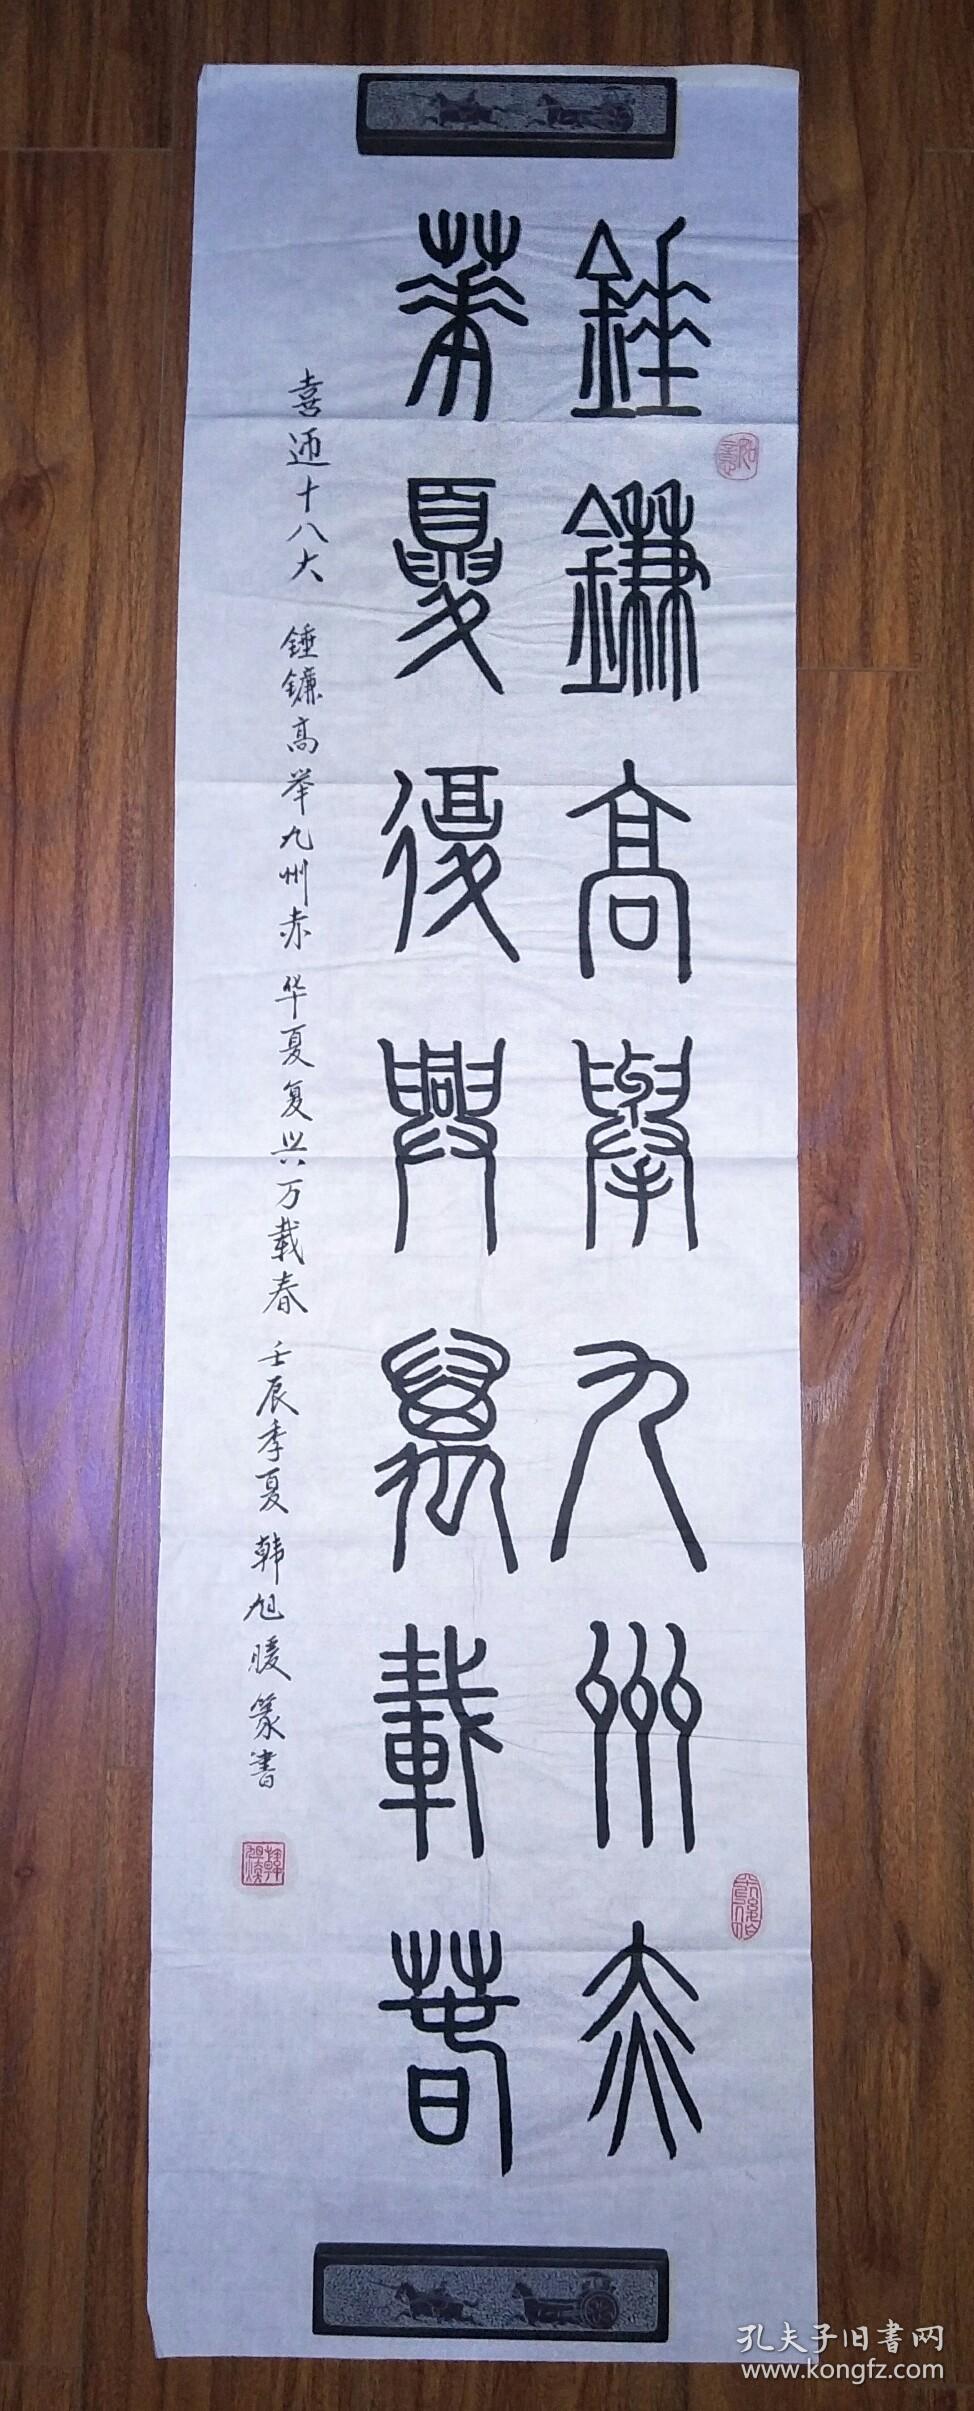 錘鐮高舉九州赤
華夏復興萬載春
喜迎十八大 锤镰高举九州赤 华夏复兴万载春 壬辰季夏 韩旭暖篆书
孔夫子旧書网
www.kongfz.com